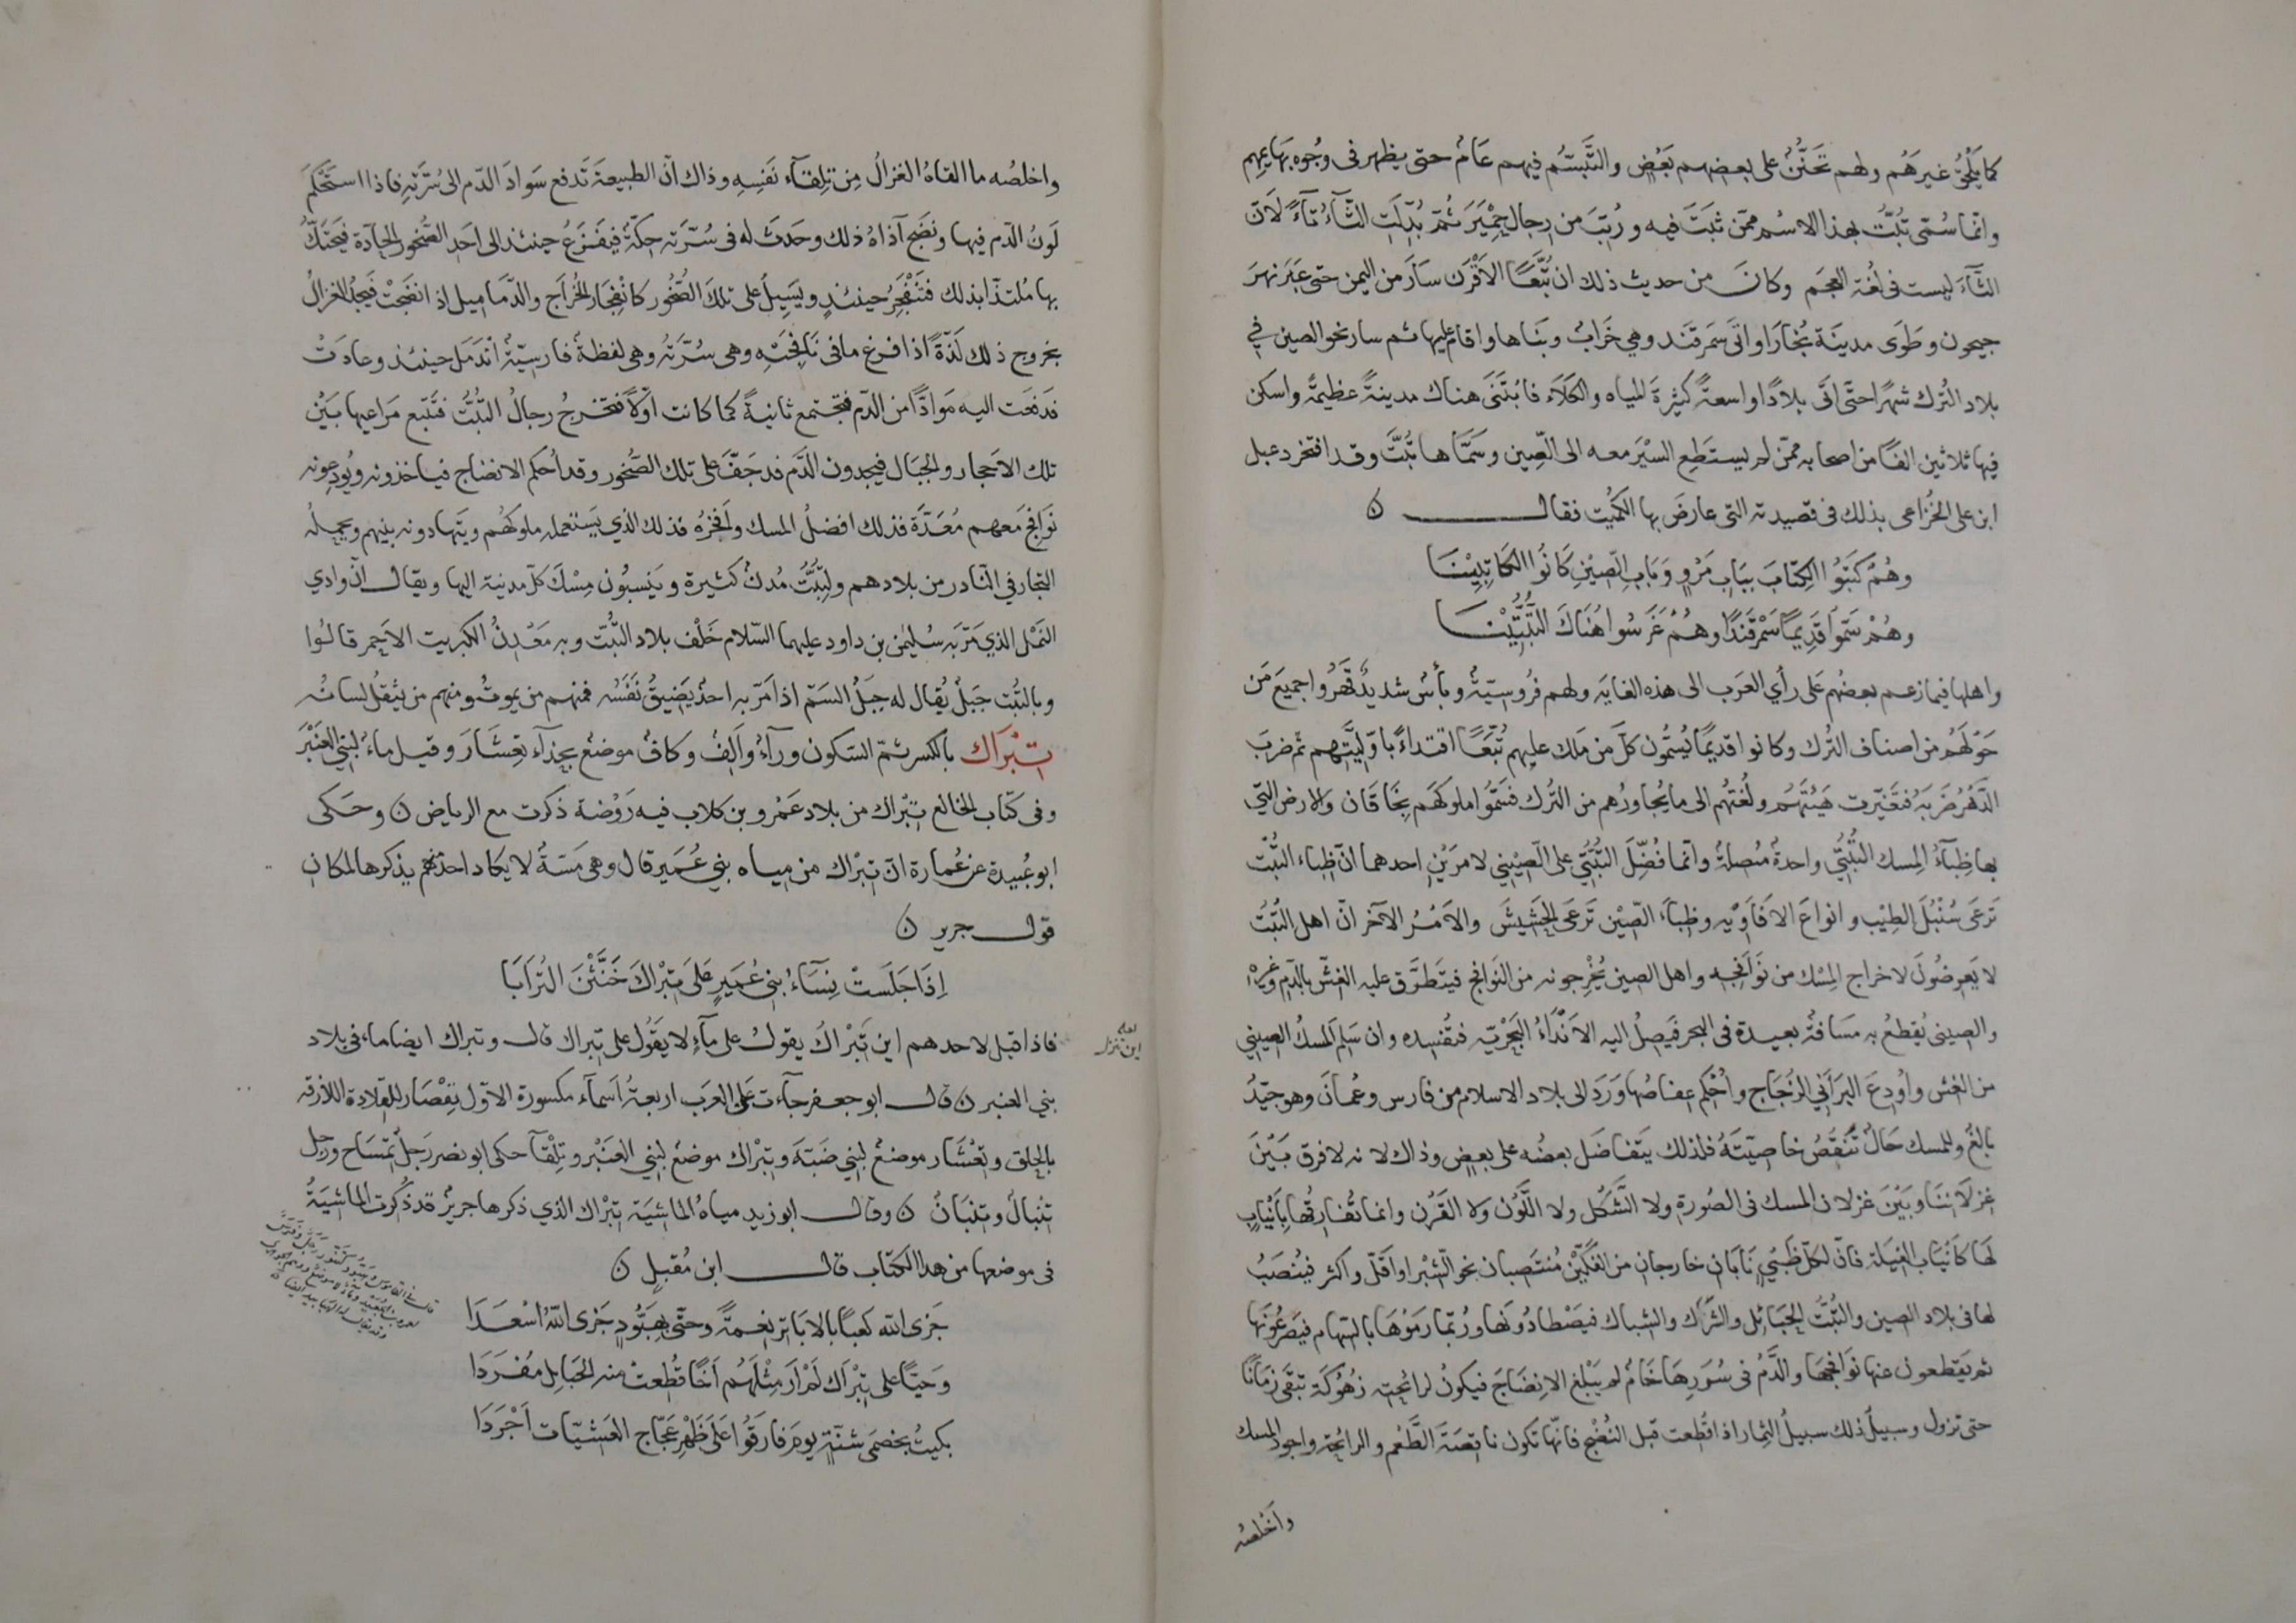 كما يلحق غيرهم ولهم تحنن على بعضهم بعض والتبسم فيهم عام حتى يظهر فى وجوه بهايمهم
وانما سمى تبت بهذا الاسم ممن ثبت فيه ورتب من رجال حمير ثم بدلت الثاء تاء لان
الثاء ليست فى لغة العجم وكان من حديث ذلك ان تبعا الاقرن سار من اليمن حتى عبر نهر
جيحون وطوى مدينة بخارا واتى سمرقند وهي خراب وبناها واقام عليها ثم سار نحو الصين في
بلاد الترك شهرا حتى اتى بلادا واسعة كثيرة المياه والكلاء فابتنى هناك مدينة عظيمة واسكن
فيها ثلاثين الفا من اصحابه ممن لم يستطع السير معه الى الصين وسماها تبت وقد افتخر دعبل
ابن على الخزاعى بذلك فى قصيدته التى عارض بها الكميت فقال ن
وهم كتبوا الكتاب بباب مرو وباب الصين كانوا الكاتبينا
وهم سموا قديما سمرقندا وهم غرسوا هناك التبتينا
واهلها فيما زعم بعضهم على رأي العرب الى هذه الغايه ولهم فروسية وبأس شديد قهروا جميع من
حولهم من اصناف الترك وكانوا قديما يسمون كل من ملك عليهم تبعا اقتداء باوليتهم ثم ضرب
الدهر ضربه فتغيرت هيئتهم ولغتهم الى ما يجاورهم من الترك فسموا ملوكهم بخاقان والارض التي
بها ظباء المسك التبتي واحدة متصلة وانما فضل التبتي على الصيني لامرين احدهما ان ظباء التبت
ترعى سنبل الطيب وانواع الافاويه وظباء الصين ترعى الحشيش والامر الآخر ان اهل التبت
لا يعرضون لاخراج المسك من نوافجه واهل الصين يخرجونه من النوافج فيتطرق عليه الغش بالدم وغيره
والصينى يقطع به مسافة بعيدة فى البحر فيصل اليه الانداء البحرية فتفسده وان سلم المسك الصيني
من الغش واودع البراني الزجاج واحكم عفاصها ورد الى بلاد الاسلام من فارس وعمان وهو جيد
بالغ وللمسك حال تنقص خاصيته فلذلك يتفاضل بعضه على بعض وذاك لانه لا فرق بين
غزلاننا وبين غزلان المسك فى الصورة ولا الشكل ولا اللون ولا القرن وانما تفارقها بانياب
لها كانياب الفيلة فان لكل ظبي نابان خارجان من الفكين منتصبان نحو الشبر او اقل واكثر فينصب
لها فى بلاد الصين والتبت الحبائل والشرك والشباك فيصطادونها وربما رموها بالسهام فيصرعونها
ثم يقطعون عنها نوافجها والدم فى سررها خام لم يبلغ الانضاج فيكون لرائحته زهوكة تبقى زمانا
حتى تزول وسبيل ذلك سبيل الثمار اذا قطعت قبل النضج فانها تكون ناقصة الطعم والرائحة واجود المسك
واخلصه
واخلصه ما القاه الغزال من تلقاء نفسه وذاك ان الطبيعة تدفع سواد الدم الى سرته فاذا استحكم
لون الدم فيها ونضج آذاه ذلك وحدث له فى سرته حكة فيفزع حينئذ الى احد الصخور الحادة فيحتك
بها ملتذا بذلك فتنفجر حينئذ ويسيل على تلك الصخور كانفجار الخراج والدماميل اذ انضجت فيجد الغزال
بخروج ذلك لذة اذا فرغ ما فى نافجته وهى سرته وهى لفظة فارسية اندمل حينئذ وعادت
فدفعت اليه موادا من الدم فتجتمع ثانية كما كانت اولا فتخرج رجال التبت فتتبع مراعيها بين
تلك الاحجار والجبال فيجدون الدم قد جف على تلك الصخور وقد احكم الانضاج فياخذونه ويودعونه
نوافج معهم معدة فذلك افضل المسك وافخره فذلك الذي يستعمله ملوكهم ويتهادونه بينهم ويحمله
التجار في النادر من بلادهم ولتبت مدن كثيرة وينسبون مسك كل مدينة اليها ويقال ان وادي
النمل الذي مر به سليمن بن داود عليهما السلام خلف بلاد التبت وبه معدن الكبريت الاحمر قالوا
وبالتبت جبل يقال له جبل السم اذا مر به احد يضيق نفسه فمنهم من يموت ومنهم من يثقل لسانه
تبراك بالكسر ثم السكون وراء والف وكاف موضع بحذاء تعشار وقيل ماء لبني العنبر
وفى كتاب الخالع تبراك من بلاد عمرو بن كلاب فيه روضة ذكرت مع الرياض ن وحكى
ابو عبيدة عن عمارة ان تبراك من مياه بني عمير قال وهى مسبة لا يكاد احدهم يذكرها لمكان
قول جرير ن
اذا جلست نساء بني عمير على تبراك خبثن الترابا
فاذا قيل لاحدهم اين تبراك يقول على ماء لا يقول على تبراك قال وتبراك ايضا ماء فى بلاد
بني العنبر ن قال ابو جعفر جاءت على العرب اربعة اسماء مكسورة الاول تقصار للقلادة اللازقه
بالحلق وتعشار موضع لبني ضبة وتبراك موضع لبني العنبر وتلقا حكى ابو نصر رجل تمساح ورجل
تنبال وتنبان ن وقال ابو زيد مياه الماشية تبراك الذي ذكرها جرير قد ذكرت الماشية
فى موضعها من هذا الكتاب قال ابن مقبل ن
جزى الله كعبا بالاباتر نعمة وحتى بهبود جزى الله اسعدا
وحيا على تبراك لم ار مثلهم اخا قطعت منه الحبايل مفردا
بكيت بخصمى شنة يوم فارقوا على ظهر عجاج العشيات اجردا